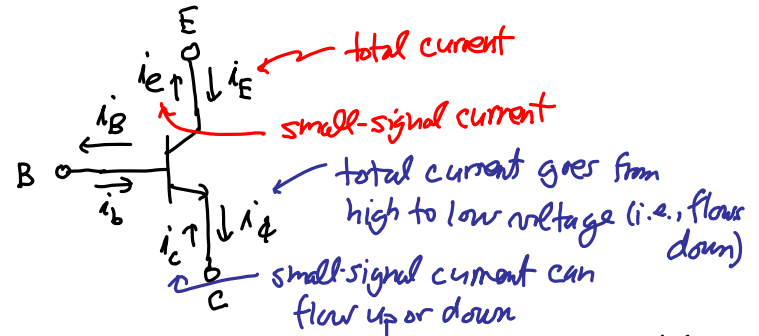 E
total current
i_e
i_E
i_B
small-signal current
B
total current goes from
i_b
high to low voltage (i.e., flows
down)
i_c
small-signal current can
C
flow up or down